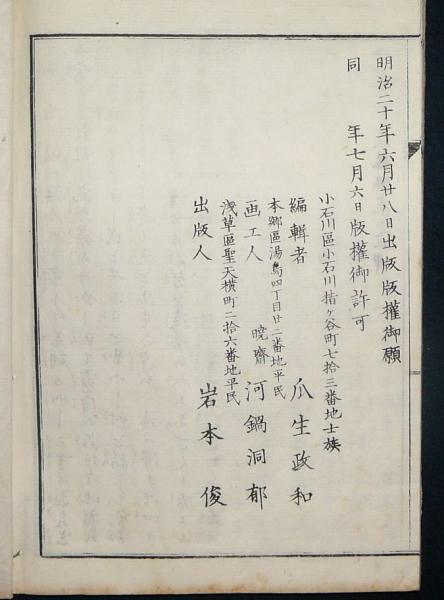 明治二十年六月廿八日出版版權御願
同 年七月六日版權御許可
小石川區小石川指ヶ谷町七拾三番地士族
編輯者 瓜生政和
本郷區湯島四丁目廿二番地平民
画工人 暁齋 河鍋洞郁
浅草區聖天横町二拾六番地平民
出版人 岩本俊